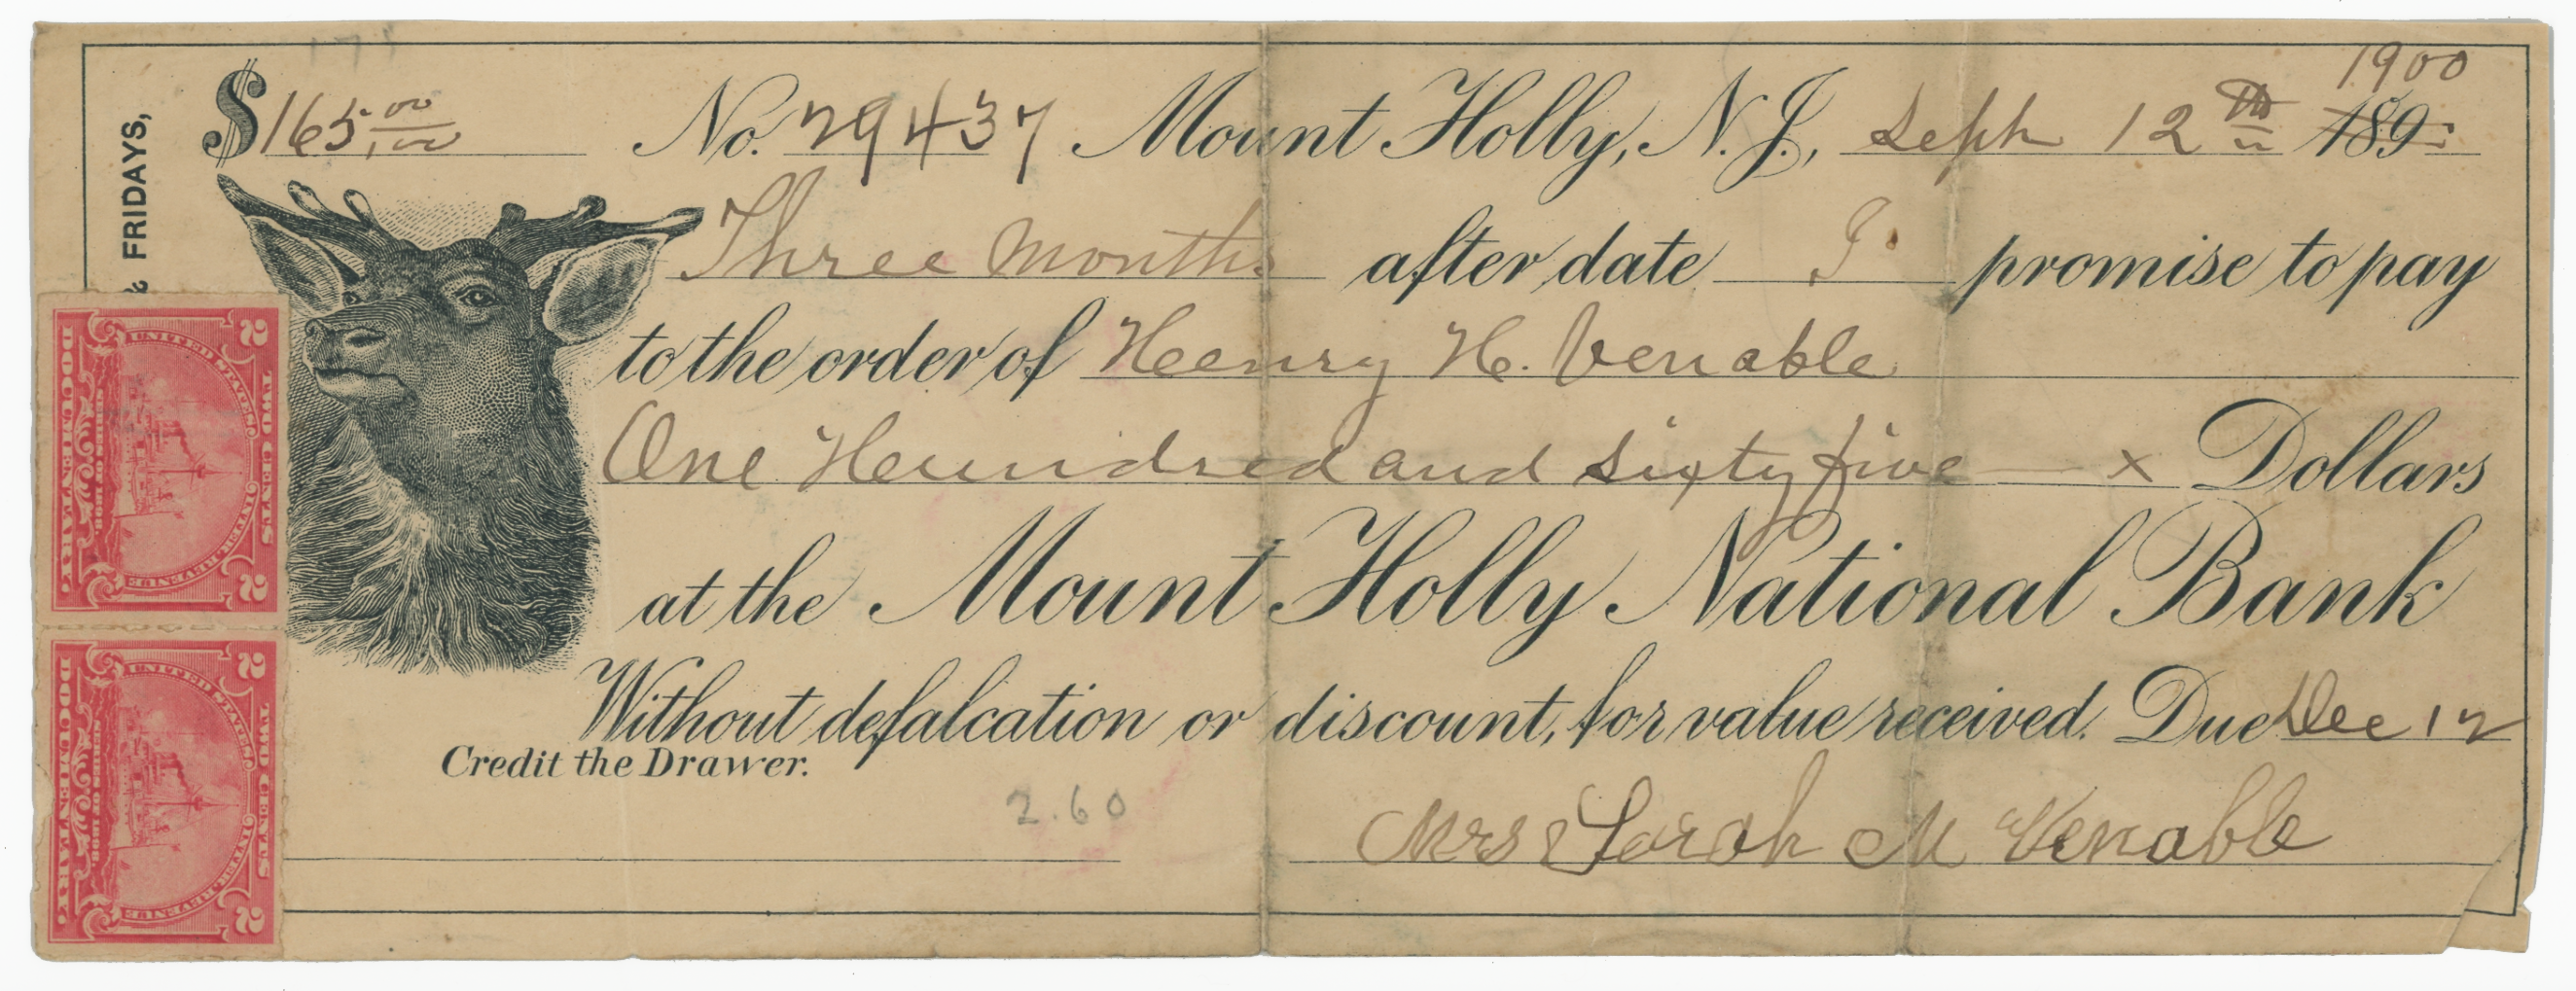 $165.00 No. 29437 Mount Holly, N.J., Sept 12th 1900 189
Three Months after date I promise to pay
to the order of Henry H. Venable
One Hundred and sixty five x Dollars
at the Mount Holly National Bank
Without defalcation or discount, for value received. Due Dec 12
Credit the Drawer.
2.60
Mrs Sarah M Venable
& FRIDAYS,
UNITED STATES
INTER. REVENUE
TWO CENTS
SERIES OF 1898
DOCUMENTARY.
2 2
UNITED STATES
INTER. REVENUE
TWO CENTS
SERIES OF 1898
DOCUMENTARY.
2 2